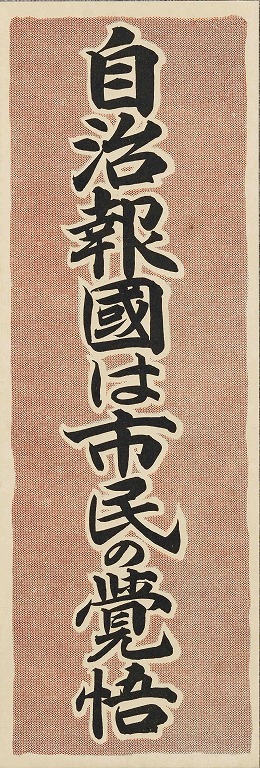 自治報國は市民の覺悟